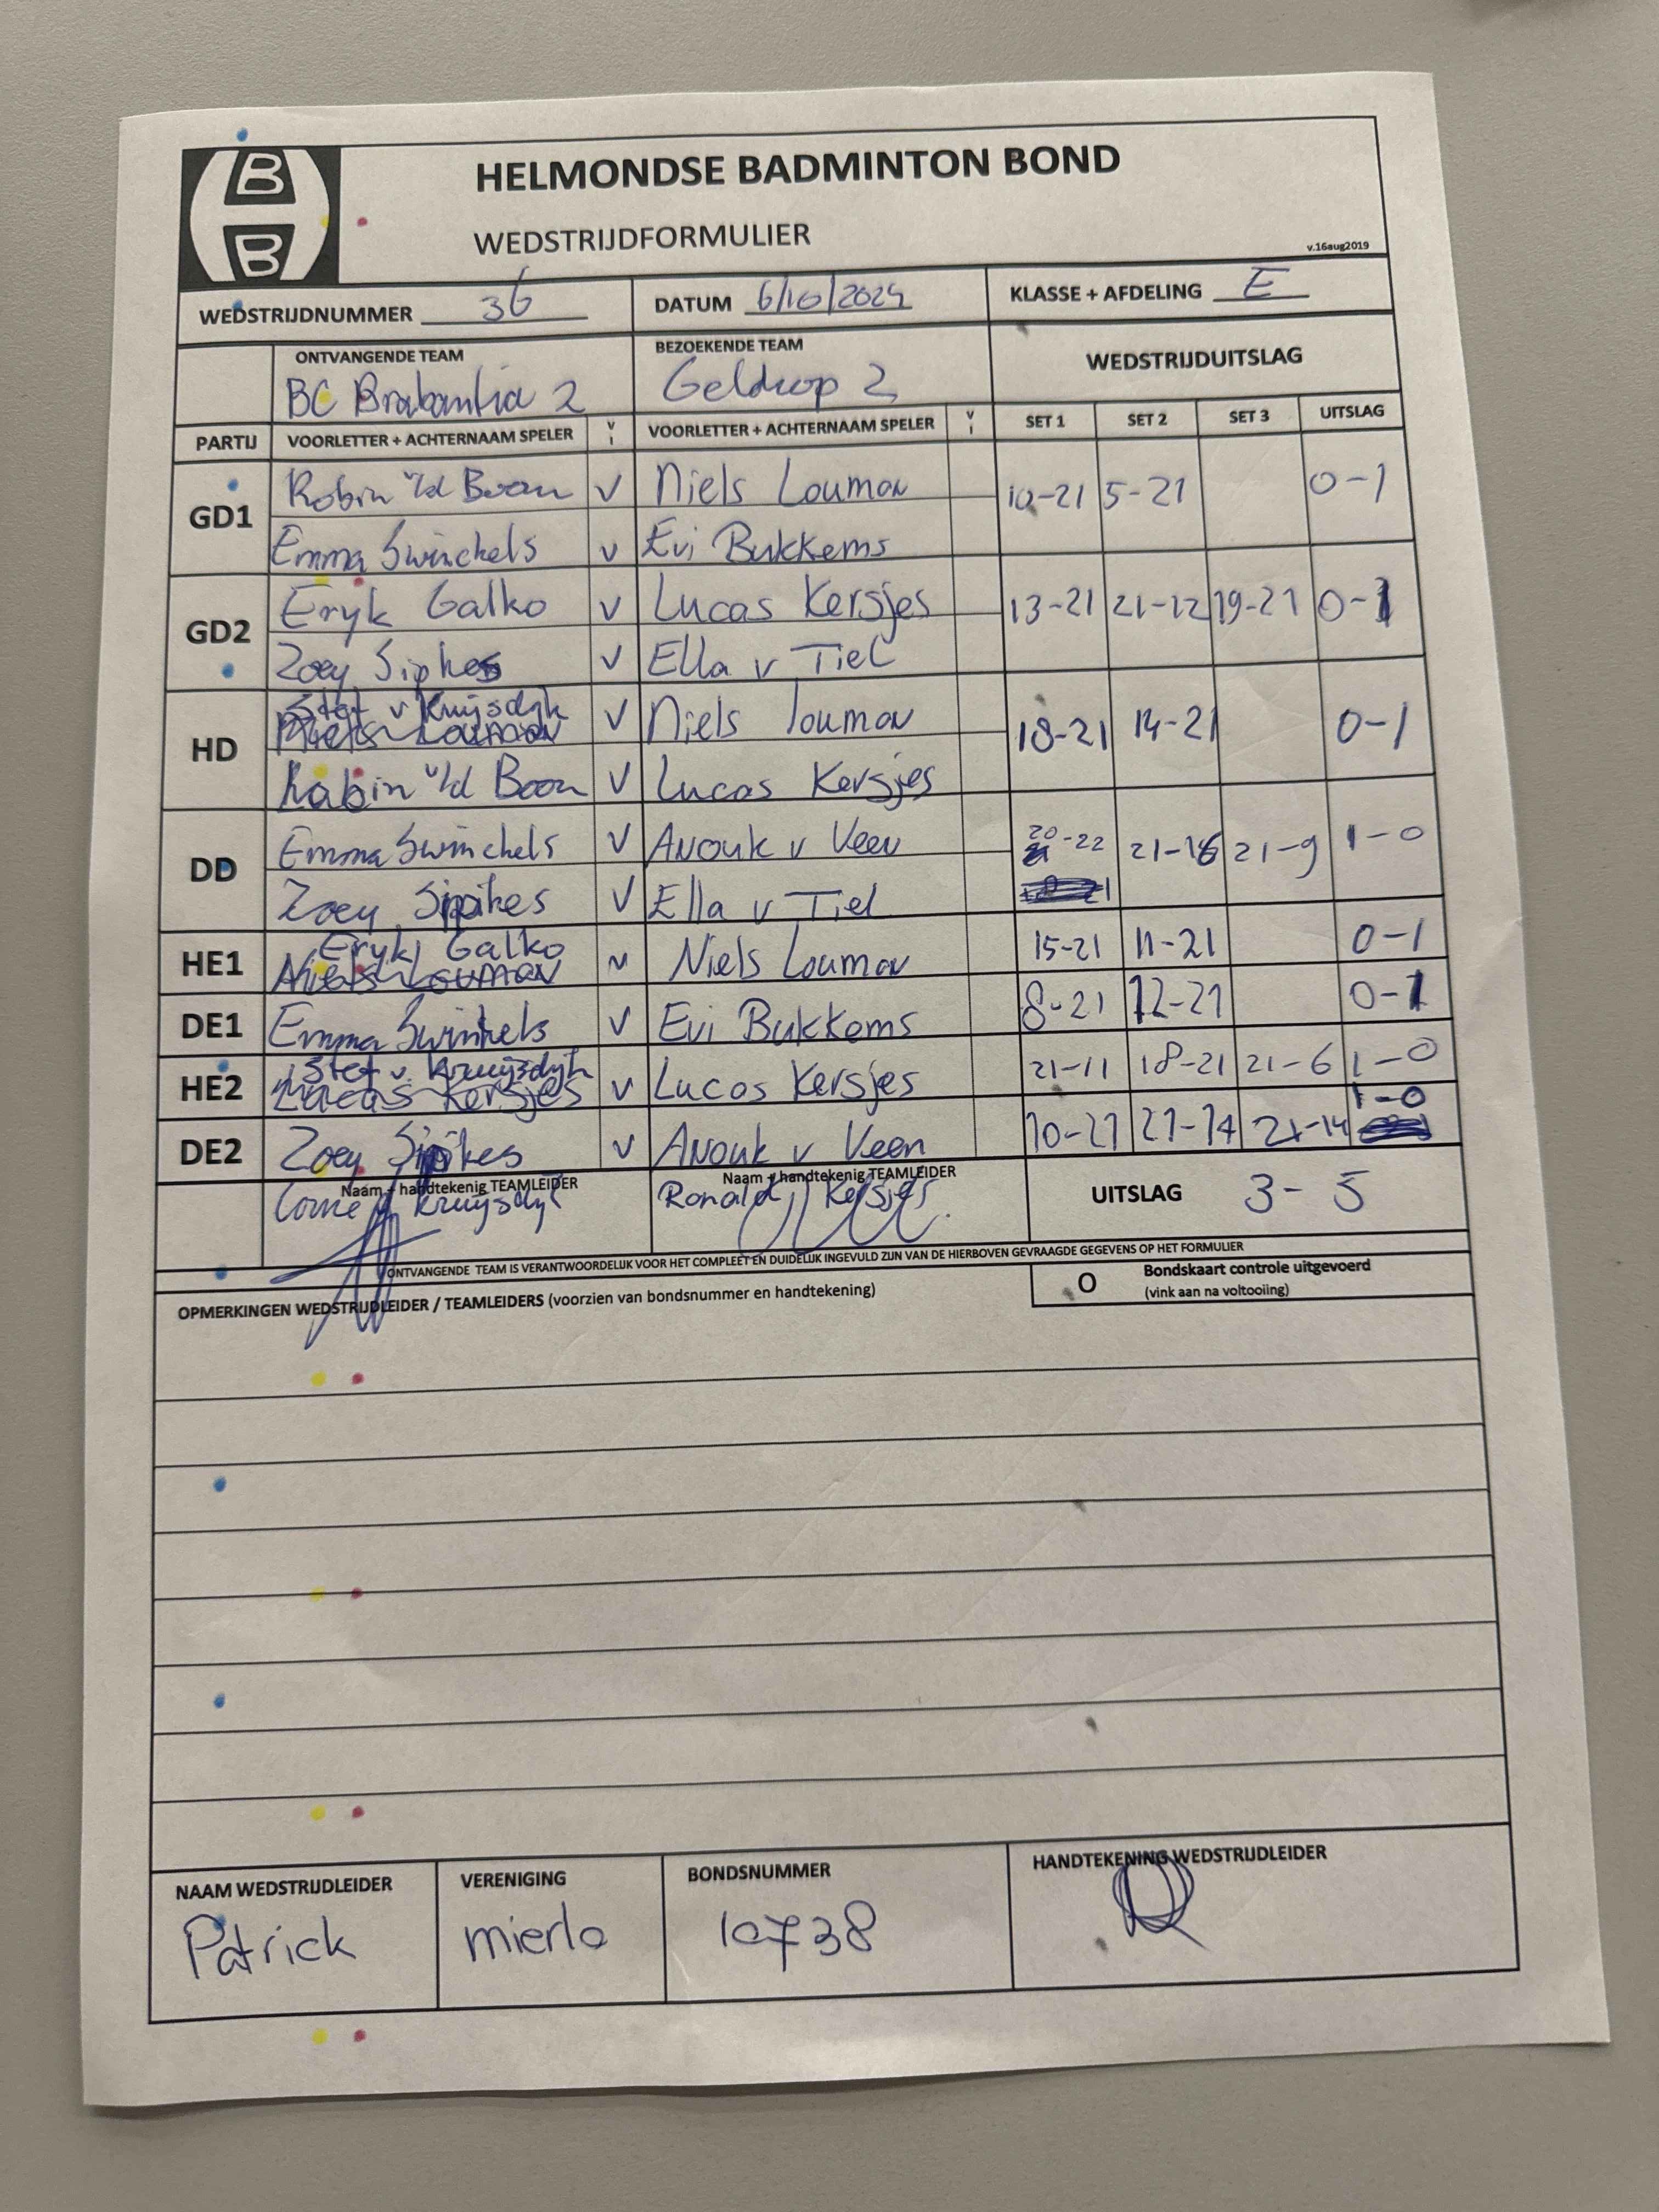 B
B
HELMONDSE BADMINTON BOND
WEDSTRIJDFORMULIER
v.16aug2019
WEDSTRIJDNUMMER 36 DATUM 6/10/2024 KLASSE + AFDELING E
ONTVANGENDE TEAM BEZOEKENDE TEAM WEDSTRIJDUITSLAG
BC Brabantia 2 Geldrop 2
PARTIJ VOORLETTER + ACHTERNAAM SPELER V I VOORLETTER + ACHTERNAAM SPELER V I SET 1 SET 2 SET 3 UITSLAG
GD1 Robin v/d Boom V Niels Louman 10-21 5-21 0-1
Emma Swinkels V Evi Bukkems
GD2 Eryk Galko V Lucas Kersjes 13-21 21-12 19-21 0-1
Zoey Sipkes V Ella v Tiel
HD Stef v Kruijsdijk V Niels Louman 18-21 14-21 0-1
Niels Louman
Robin v/d Boom V Lucas Kersjes
DD Emma Swinkels V Anouk v Veen 20-22 21-16 21-9 1-0
Zoey Sipkes V Ella v Tiel
HE1 Eryk Galko V Niels Louman 15-21 11-21 0-1
Niels Louman
DE1 Emma Swinkels V Evi Bukkems 8-21 12-21 0-1
HE2 Stef v. Kruijsdijk V Lucas Kersjes 21-11 18-21 21-6 1-0
Lucas Kersjes
DE2 Zoey Sipkes V Anouk v Veen 10-21 21-14 21-14 1-0
Naam + handtekenig TEAMLEIDER Naam + handtekenig TEAMLEIDER UITSLAG 3-5
Kruijsdijk Ronald Kersjes
ONTVANGENDE TEAM IS VERANTWOORDELIJK VOOR HET COMPLEET EN DUIDELIJK INGEVULD ZIJN VAN DE HIERBOVEN GEVRAAGDE GEGEVENS OP HET FORMULIER
OPMERKINGEN WEDSTRIJDLEIDER / TEAMLEIDERS (voorzien van bondsnummer en handtekening) O Bondskaart controle uitgevoerd
(vink aan na voltooiing)
NAAM WEDSTRIJDLEIDER VERENIGING BONDSNUMMER HANDTEKENING WEDSTRIJDLEIDER
Patrick mierlo 10738